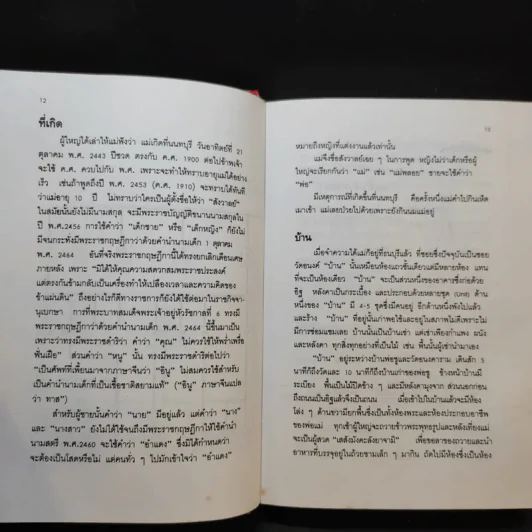 12
ที่เกิด
ผู้ใหญ่ได้เล่าให้แม่ฟังว่า แม่เกิดที่นนทบุรี วันอาทิตย์ที่ 21
ตุลาคม พ.ศ. 2443 ปีชวด ตรงกับ ค.ศ. 1900 ต่อไปข้าพเจ้า
จะใช้ ค.ศ. ควบไปกับ พ.ศ. เพราะจะทำให้ทราบอายุแม่ได้อย่าง
เร็ว เช่นถ้าพูดถึงปี พ.ศ. 2453 (ค.ศ. 1910) จะทราบได้ทันที
ว่าแม่อายุ 10 ปี ไม่ทราบว่าใครเป็นผู้ตั้งชื่อให้ว่า "สังวาลย์"
ในสมัยนั้นยังไม่มีนามสกุล จะมีพระราชบัญญัติขนานนามสกุลใน
ปี พ.ศ.2456 การใช้คำว่า "เด็กชาย" หรือ "เด็กหญิง" ก็ยังไม่
มีจนกระทั่งมีพระราชกฤษฎีกาว่าด้วยคำนำนามเด็ก 1 ตุลาคม
พ.ศ. 2464 อันที่จริงพระราชกฤษฎีกานี้ได้ทรงยกเลิกเดือนเศษ
ภายหลัง เพราะ "มิได้ให้คุณความสดวกสมพระราชประสงค์
แต่ตรงกันข้ามกลับเป็นเครื่องทำให้เปลืองเวลาและความคิดของ
ข้าแผ่นดิน" ถึงอย่างไรก็ดีทางราชการก็ยังได้ใช้ต่อมาในราชกิจจา-
นุเบกษา การที่พระบาทสมเด็จพระเจ้าอยู่หัวรัชกาลที่ 6 ทรงมี
พระราชกฤษฎีกาว่าด้วยคำนำนามเด็ก พ.ศ. 2464 นี้ขึ้นมาเป็น
เพราะว่าทรงมีพระราชดำริว่า คำว่า "คุณ" ไม่ควรใช้ให้พร่ำเพรื่อ
ฟั่นเฝือ" ส่วนคำว่า "หนู" นั้น ทรงมีพระราชดำริต่อไปว่า
"เป็นศัพท์ที่เพี้ยนมาจากภาษาจีนว่า "อินู" ไม่สมควรใช้สำหรับ
เป็นคำนำนามเด็กที่เป็นเชื้อชาติสยามแท้" ("อินู" ภาษาจีนแปล
ว่า ทาส")
สำหรับผู้ชายนั้นคำว่า "นาย" มีอยู่แล้ว แต่คำว่า "นาง"
และ "นางสาว" ยังไม่ได้ใช้จนถึงมีพระราชกฤษฎีกาให้ใช้คำนำ
นามสตรี พ.ศ.2460 จะใช้คำว่า "อำแดง" ซึ่งมิได้กำหนดว่า
จะต้องเป็นโสดหรือไม่ แต่คนทั่ว ๆ ไปมักเข้าใจว่า "อำแดง"
13
หมายถึงหญิงที่แต่งงานแล้วเท่านั้น
แม่จึงชื่อสังวาลย์เฉย ๆ ในการพูด หญิงไม่ว่าเด็กหรือผู้
ใหญ่จะเรียกกันว่า "แม่" เช่น "แม่พลอย" ชายจะใช้คำว่า
"พ่อ"
มีเหตุการณ์ที่เกิดขึ้นที่นนทบุรี คือครั้งหนึ่งแม่คว้าไปกินเห็ด
เมาเข้า แม่เลยป่วยไปด้วยเพราะยังกินนมแม่อยู่
บ้าน
เมื่อจำความได้แม่ก็อยู่ที่ธนบุรีแล้ว ที่ซอยซึ่งปัจจุบันเป็นซอย
วัดอนงค์ "บ้าน" นั้นเหมือนห้องแถวชั้นเดียวแต่มีหลายห้อง แทน
ที่จะเป็นห้องเดียว "บ้าน" จะเป็นส่วนหนึ่งของอาคารซึ่งก่อด้วย
อิฐ หลังคาเป็นกระเบื้อง และประกอบด้วยหลายชุด (Unit) ด้าน
หนึ่งของ "บ้าน" มี 4-5 ชุดซึ่งมีคนอยู่ อีกด้านหนึ่งพังไปแล้ว
และร้าง "บ้าน" ที่อยู่นั้นเก่าพอใช้และอยู่ในสภาพไม่ดีเพราะไม่
มีการซ่อมแซมเลย บ้านนั้นเป็นบ้านเช่า แต่เช่าเพียงกำแพง ผนัง
และหลังคา ทุกสิ่งทุกอย่างที่เป็นไม้ เช่น พื้นนั้นผู้เช่านำมาเอง
"บ้าน" อยู่ระหว่างบ้านพ่อชูและวัดอนงคาราม เดินสัก 5
นาทีก็ถึงวัดและ 10 นาทีก็ถึงบ้านเก่าของพ่อชู ข้างหน้าบ้านมี
ระเบียง พื้นเป็นไม้ปิดข้าง ๆ และมีหลังคามุงจาก ส่วนนอกก่อน
ถึงถนนเป็นอิฐแล้วจึงเป็นถนน เมื่อเข้าไปในบ้านแล้วมีห้อง
โล่ง ๆ ด้านขวามียกพื้นซึ่งเป็นทั้งห้องพระและห้องประกอบอาชีพ
ของพ่อแม่ ทุกเช้าผู้ใหญ่จะถวายข้าวพระพุทธรูปและหลังเที่ยงแม่
จะเป็นผู้สวด "เสสังมังคะลังยาจามิ" เพื่อขอลาของถวายและนำ
อาหารที่บรรจุอยู่ในถ้วยชามเล็ก ๆ มากิน ถัดไปมีห้องซึ่งเป็นห้อง